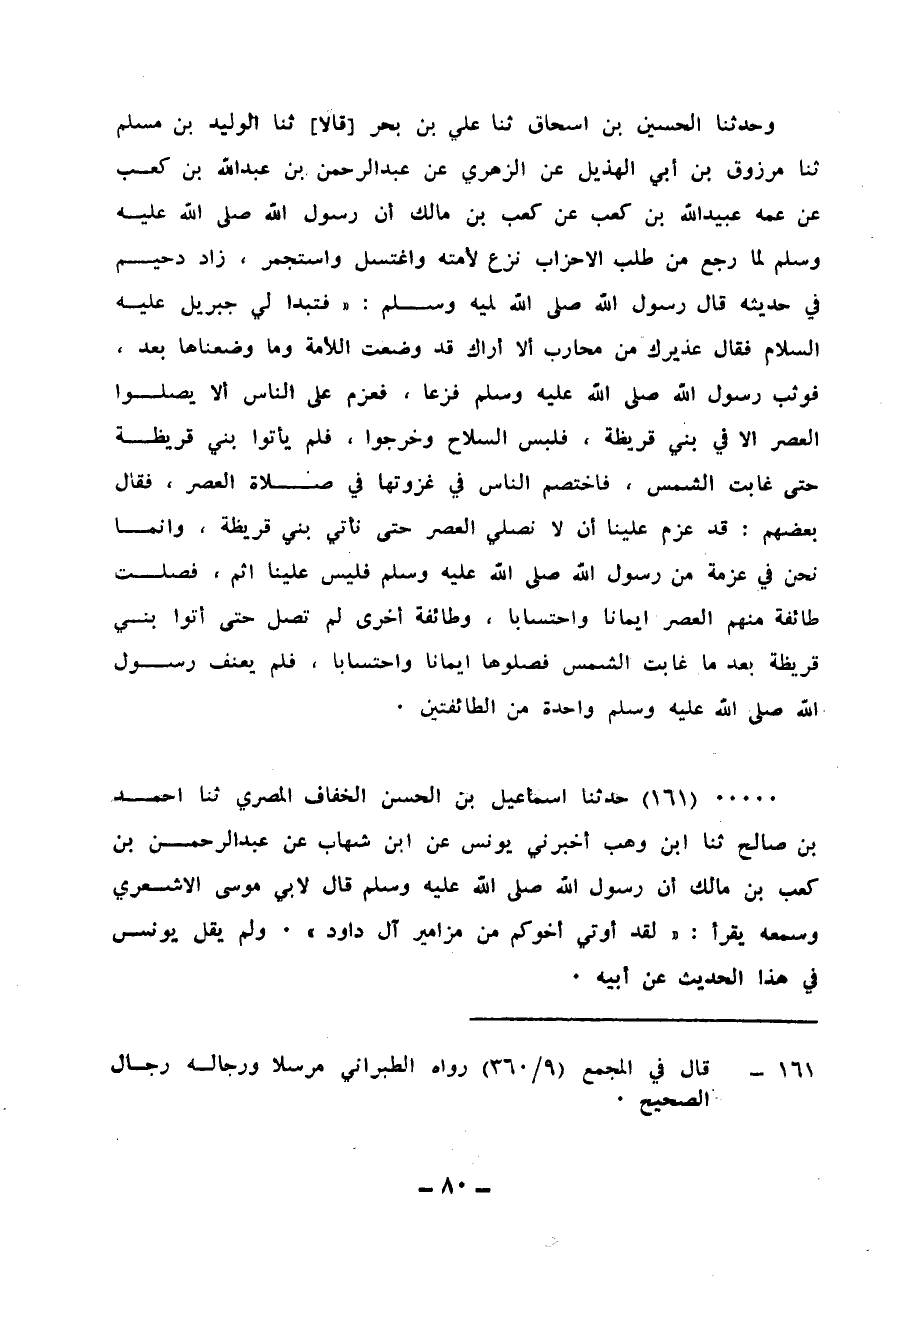 وحدثنا الحسين بن اسحاق ثنا علي بن بحر [قالا] ثنا الوليد بن مسلم
ثنا مرزوق بن أبي الهذيل عن الزهري عن عبدالرحمن بن عبدالله بن كعب
عن عمه عبيدالله بن كعب عن كعب بن مالك أن رسول الله صلى الله عليه
وسلم لما رجع من طلب الاحزاب نزع لأمته واغتسل واستجمر ، زاد دحيم
في حديثه قال رسول الله صلى الله ليه وسلم : « فتبدا لي جبريل عليه
السلام فقال عذيرك من محارب ألا أراك قد وضعت اللأمة وما وضعناها بعد ،
فوثب رسول الله صلى الله عليه وسلم فزعا ، فعزم على الناس ألا يصلوا
العصر الا في بني قريظة ، فلبس السلاح وخرجوا ، فلم يأتوا بني قريظة
حتى غابت الشمس ، فاختصم الناس في غزوتها في صلاة العصر ، فقال
بعضهم : قد عزم علينا أن لا نصلي العصر حتى نأتي بني قريظة ، وانما
نحن في عزمة من رسول الله صلى الله عليه وسلم فليس علينا اثم ، فصلت
طائفة منهم العصر ايمانا واحتسابا ، وطائفة أخرى لم تصل حتى أتوا بني
قريظة بعد ما غابت الشمس فصلوها ايمانا واحتسابا ، فلم يعنف رسول
الله صلى الله عليه وسلم واحدة من الطائفتين ٠
٠٠٠٠٠ (١٦١) حدثنا اسماعيل بن الحسن الخفاف المصري ثنا احمد
بن صالح ثنا ابن وهب أخبرني يونس عن ابن شهاب عن عبدالرحمن بن
كعب بن مالك أن رسول الله صلى الله عليه وسلم قال لابي موسى الاشعري
وسمعه يقرأ : « لقد أوتي أخوكم من مزامير آل داود » ٠ ولم يقل يونس
في هذا الحديث عن أبيه ٠
١٦١ – قال في المجمع (٣٦٠/٩) رواه الطبراني مرسلا ورجاله رجال
الصحيح ٠
– ٨٠ –